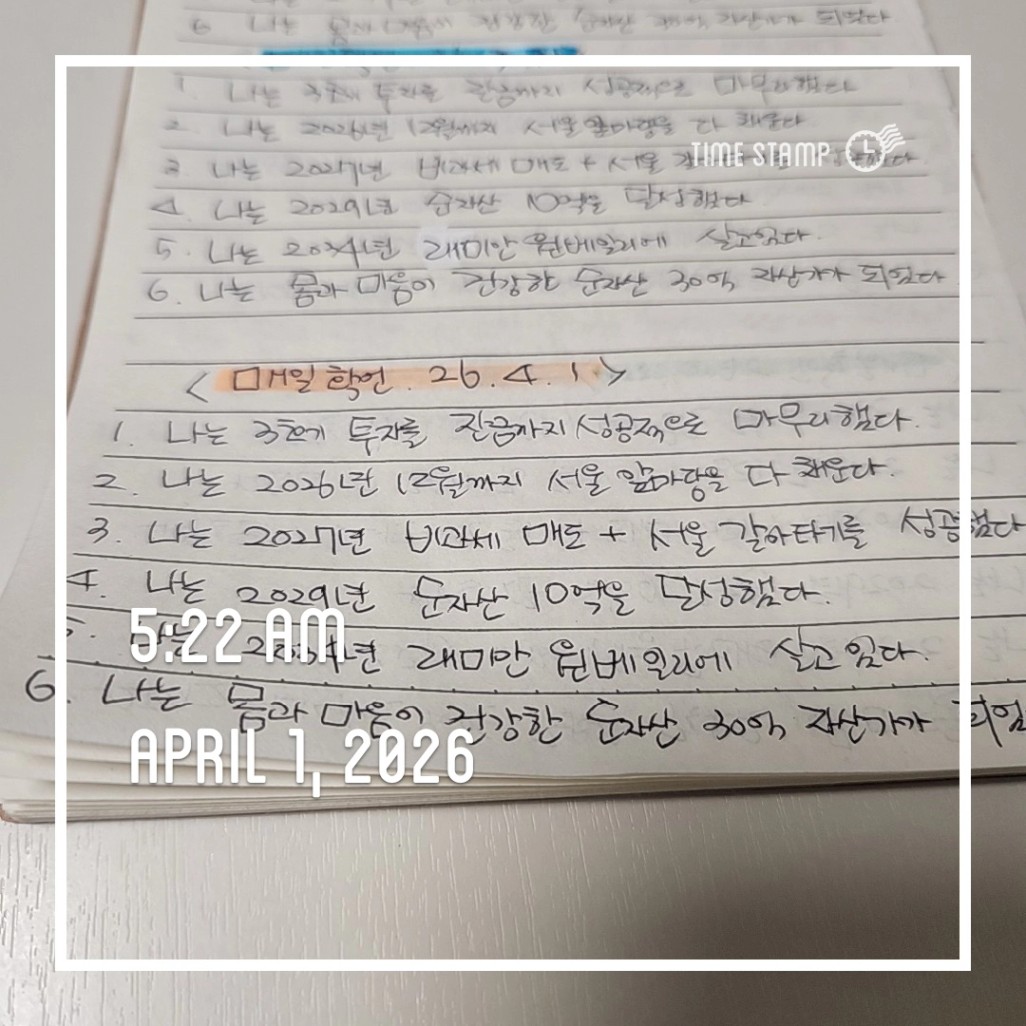 6 나는 몸과 마음이 건강한 순자산 30억 자산가가 되었다
1. 나는 3호기 투자를 잔금까지 성공적으로 마무리했다
2. 나는 2026년 12월까지 서울 앞마당을 다 채운다.
TIME STAMP
3 나는 2027년 비과세 매도 + 서울
4. 나는 2029년 순자산 10억을 달성했다
5. 나는 2034년 래미안 원베일리에 살고있다.
6. 나는 몸과 마음이 건강한 순자산 30억 자산가가 되었다
< 매일 확언. 26. 4. 1. >
1. 나는 3호기 투자를 잔금까지 성공적으로 마무리했다.
2. 나는 2026년 12월까지 서울 앞마당을 다 채운다.
3. 나는 2027년 비과세 매도 + 서울 갈아타기를 성공했다
4. 나는 2029년 순자산 10억을 달성했다.
5. 나는 2034년 래미안 원베일리에 살고있다.
5:22 AM
6. 나는 몸과 마음이 건강한 순자산 30억 자산가가 되었
APRIL 1, 2026